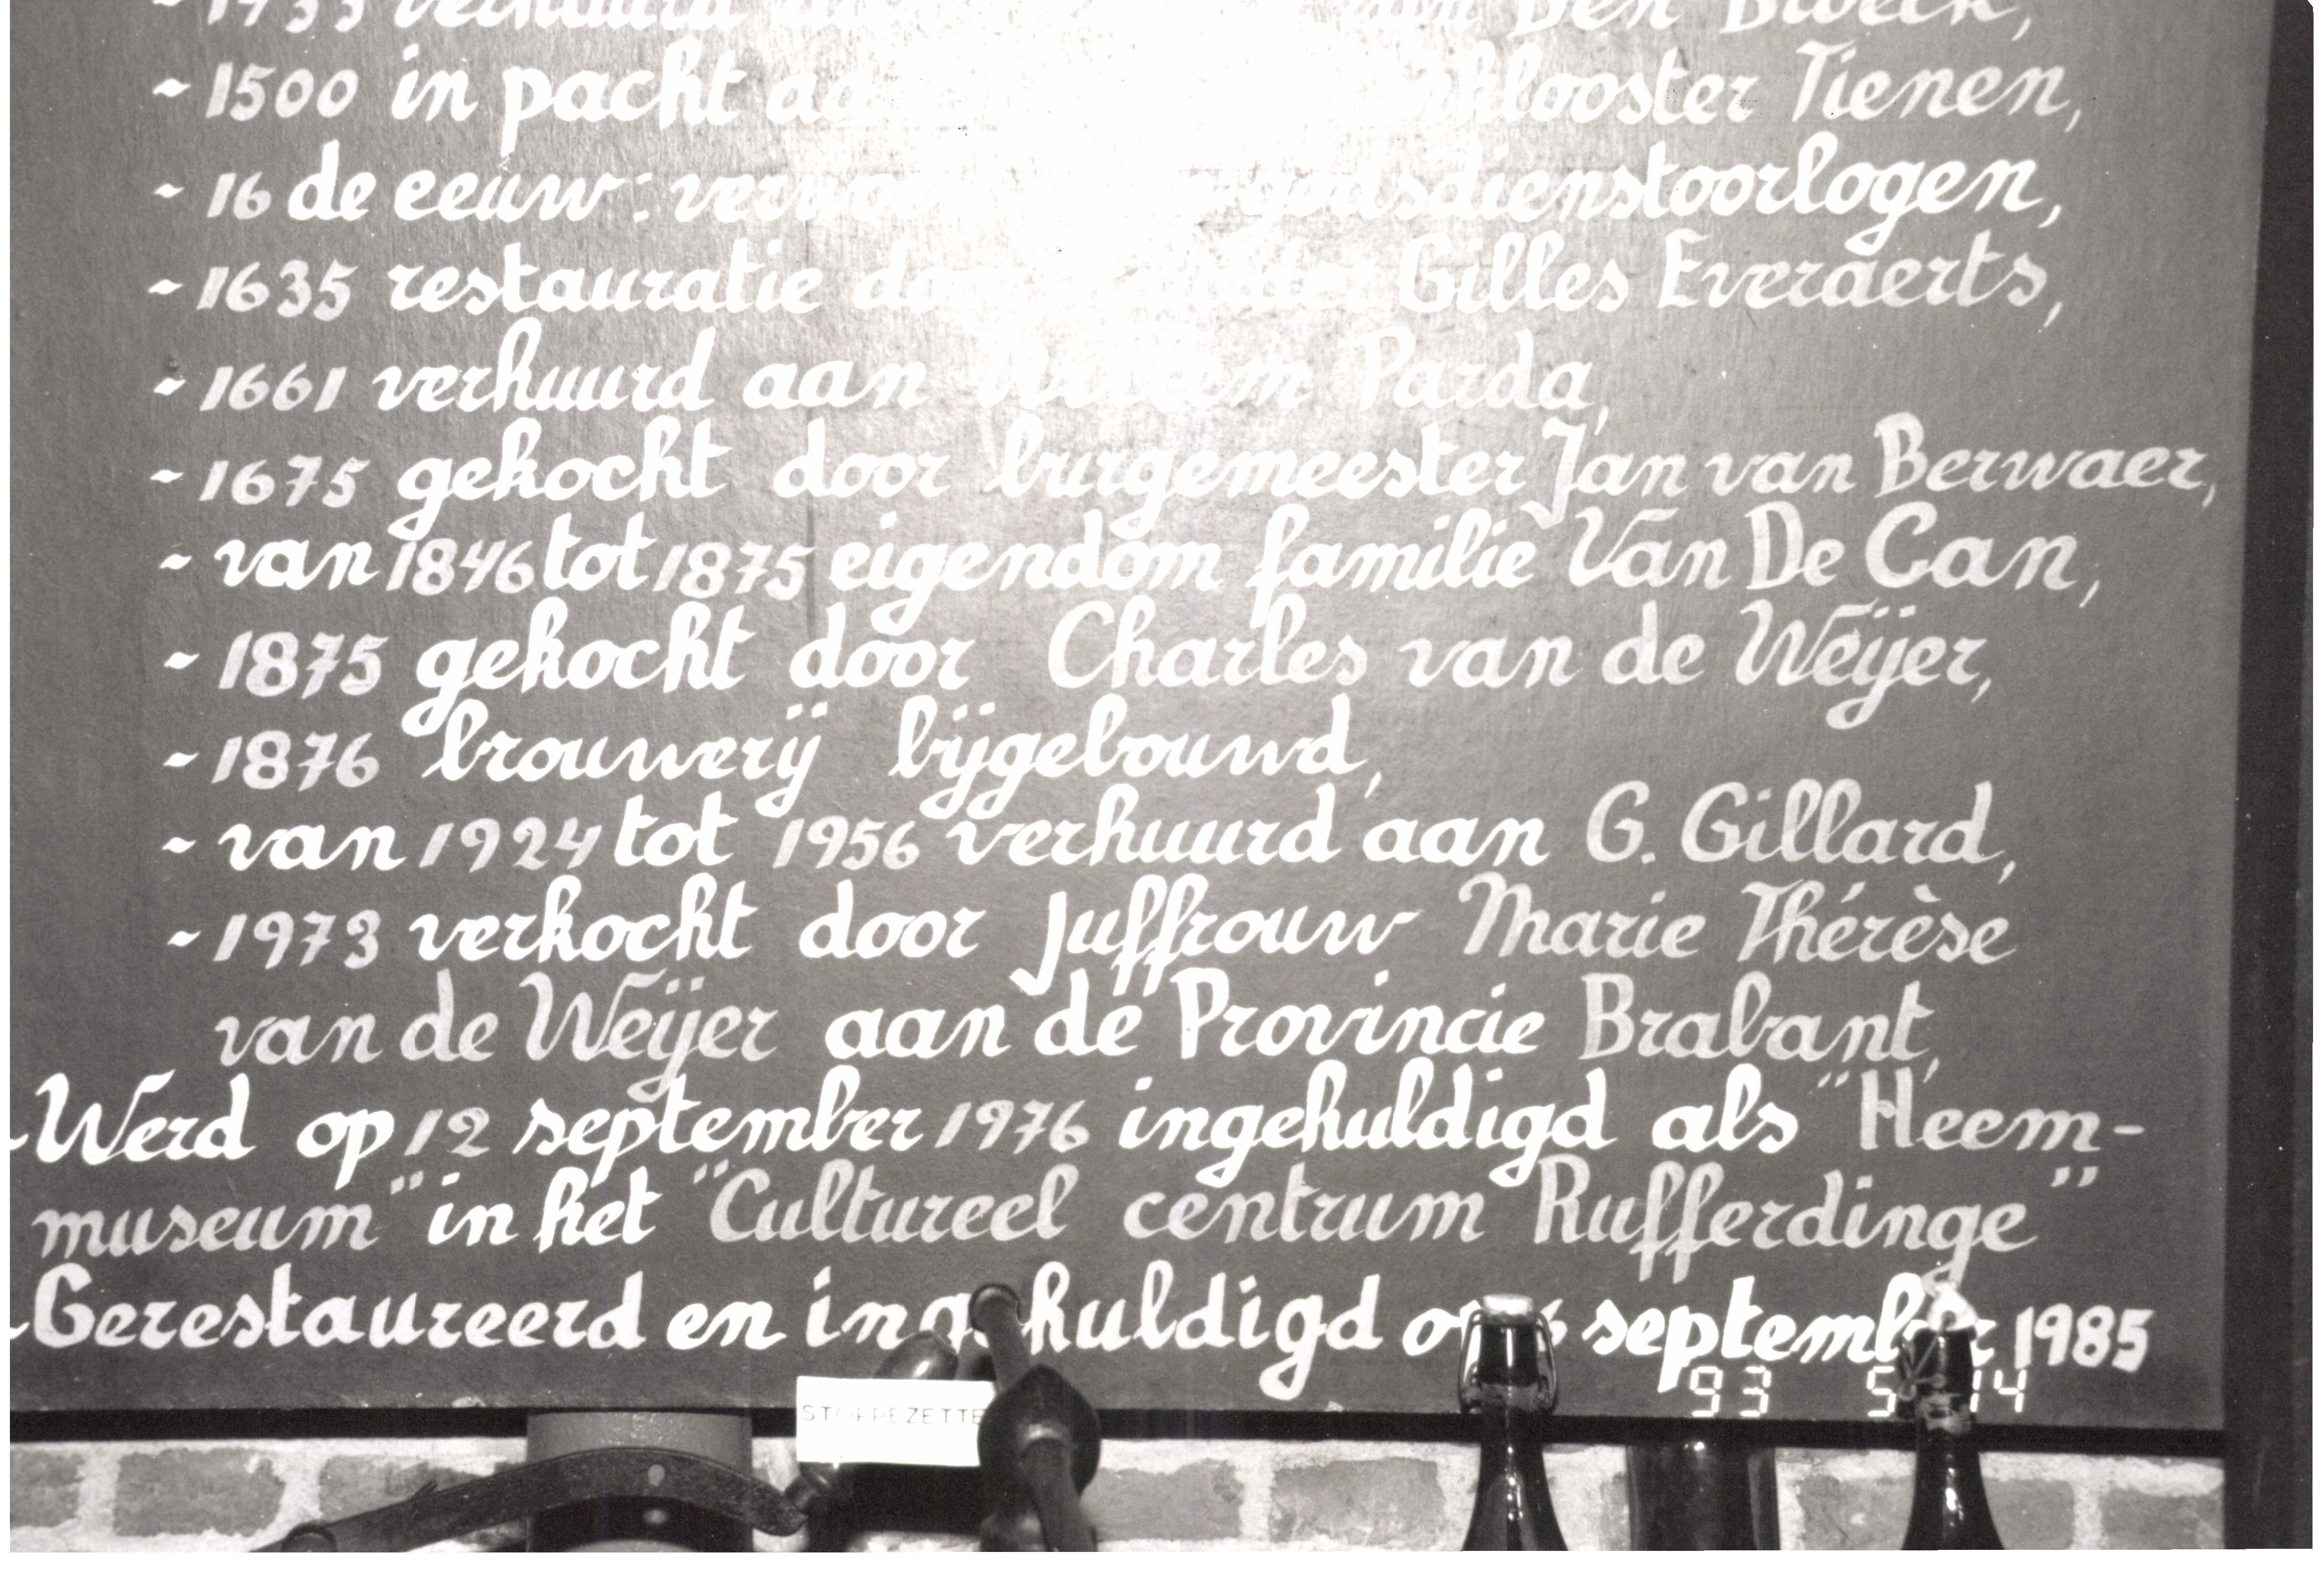 verhuurd Den Broeck,
- 1500 in pacht klooster Tienen,
- 16 de eeuw: godsdienstoorlogen,
- 1635 restauratie door Gilles Everaerts,
- 1661 verhuurd aan Willem Parda,
- 1675 gekocht door burgemeester Jan van Berwaer,
- van 1846 tot 1875 eigendom familie Van De Can,
- 1875 gekocht door Charles van de Weÿer,
- 1876 brouwerÿ bÿgebouwd,
- van 1924 tot 1956 verhuurd aan G. Gillard,
- 1973 verkocht door Juffrouw Marie Thérèse
van de Weÿer aan de Provincie Brabant,
- Werd op 12 september 1976 ingehuldigd als "Heem-
museum" in het "Cultureel centrum Rufferdinge"
- Gerestaureerd en ingehuldigd op 6 september 1985
93 5 14